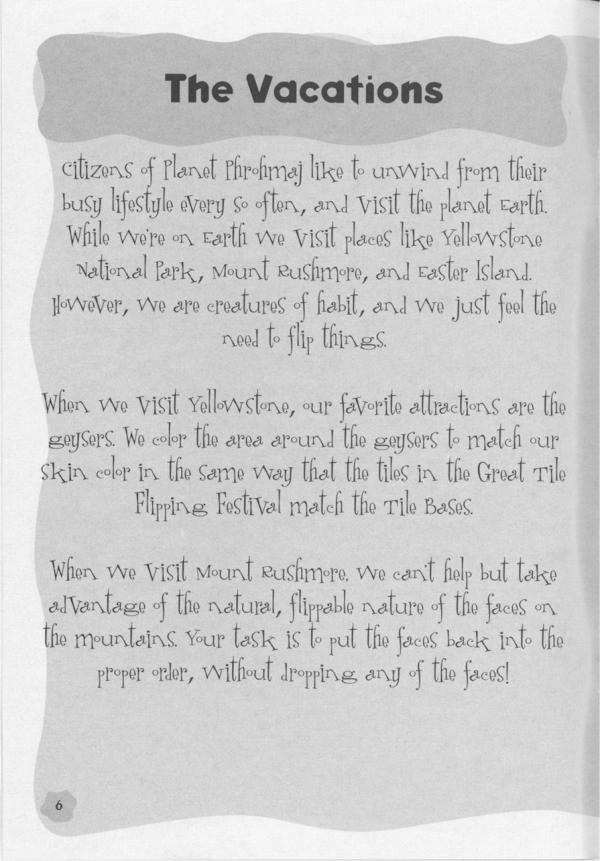 The Vacations
Citizens of Planet Phrohmaj like to unwind from their
busy lifestyle every so often, and visit the planet Earth.
While we're on Earth we visit places like Yellowstone
National Park, Mount Rushmore, and Easter Island.
However, we are creatures of habit, and we just feel the
need to flip things.
When we visit Yellowstone, our favorite attractions are the
geysers. We color the area around the geysers to match our
skin color in the same way that the tiles in the Great Tile
Flipping Festival match the Tile Bases.
When we visit Mount Rushmore. we can't help but take
advantage of the natural, flippable nature of the faces on
the mountains. Your task is to put the faces back into the
proper order, without dropping any of the faces!
6